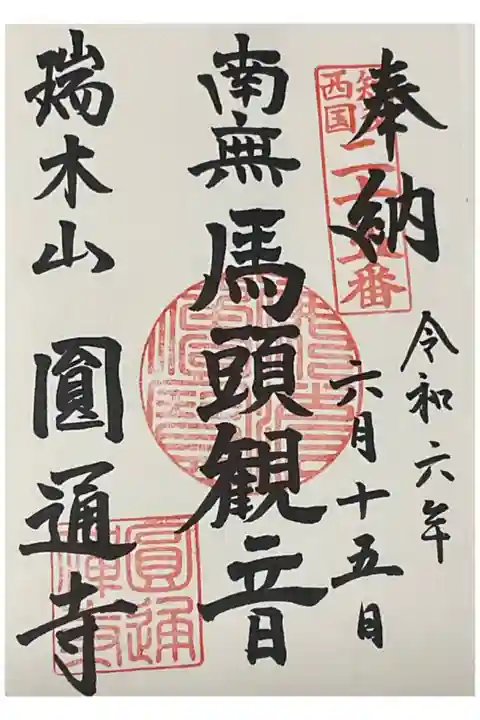 奉納
令和六年
六月十五日
南無馬頭観音
瑞木山 圓通寺
西国
番
圓通